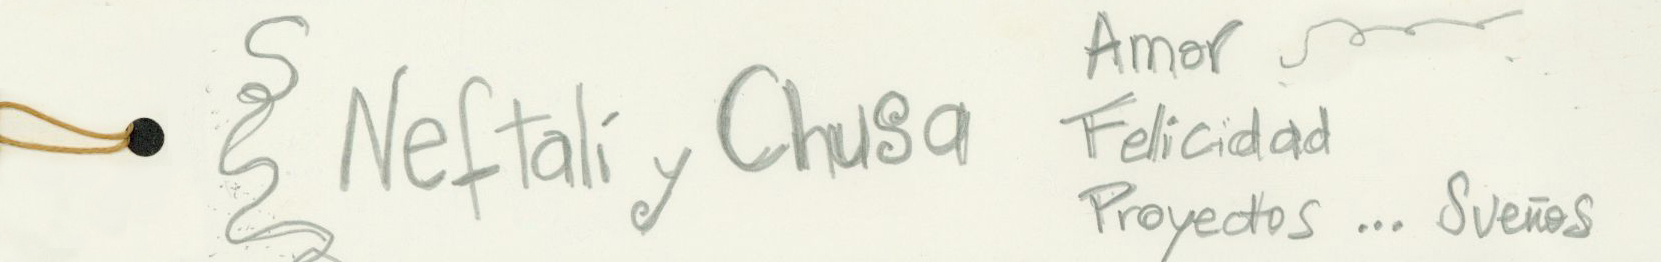 Neftalí y Chusa
Amor
Felicidad
Proyectos ... Sueños